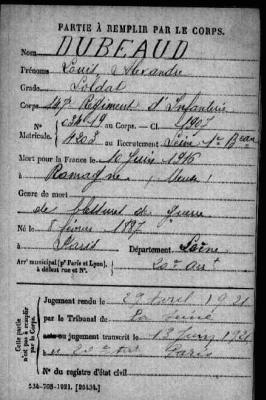 PARTIE À REMPLIR PAR LE CORPS.
Nom DUBEAUD
Prénoms Louis Alexandre
Grade Soldat
Corps 147e Régiment d'Infanterie
N° au Corps. — Cl. 1907
Matricule. 4203 au Recrutement Seine 1er Bau
Mort pour la France le 10 Juin 1916
à Romagne (Meuse)
Genre de mort
de blessures de guerre
Né le 8 février 1887
à Paris Département Seine
Arrt municipal (pr Paris et Lyon), à défaut rue et N°. 20e Arrt
Cette partie n'est pas à remplir par le Corps.
Jugement rendu le 29 Avril 1921
par le Tribunal de La Seine
acte ou jugement transcrit le 13 Juin 1921
à 20e Arrt Paris
N° du registre d'état civil
534-708-1921. [26434.]